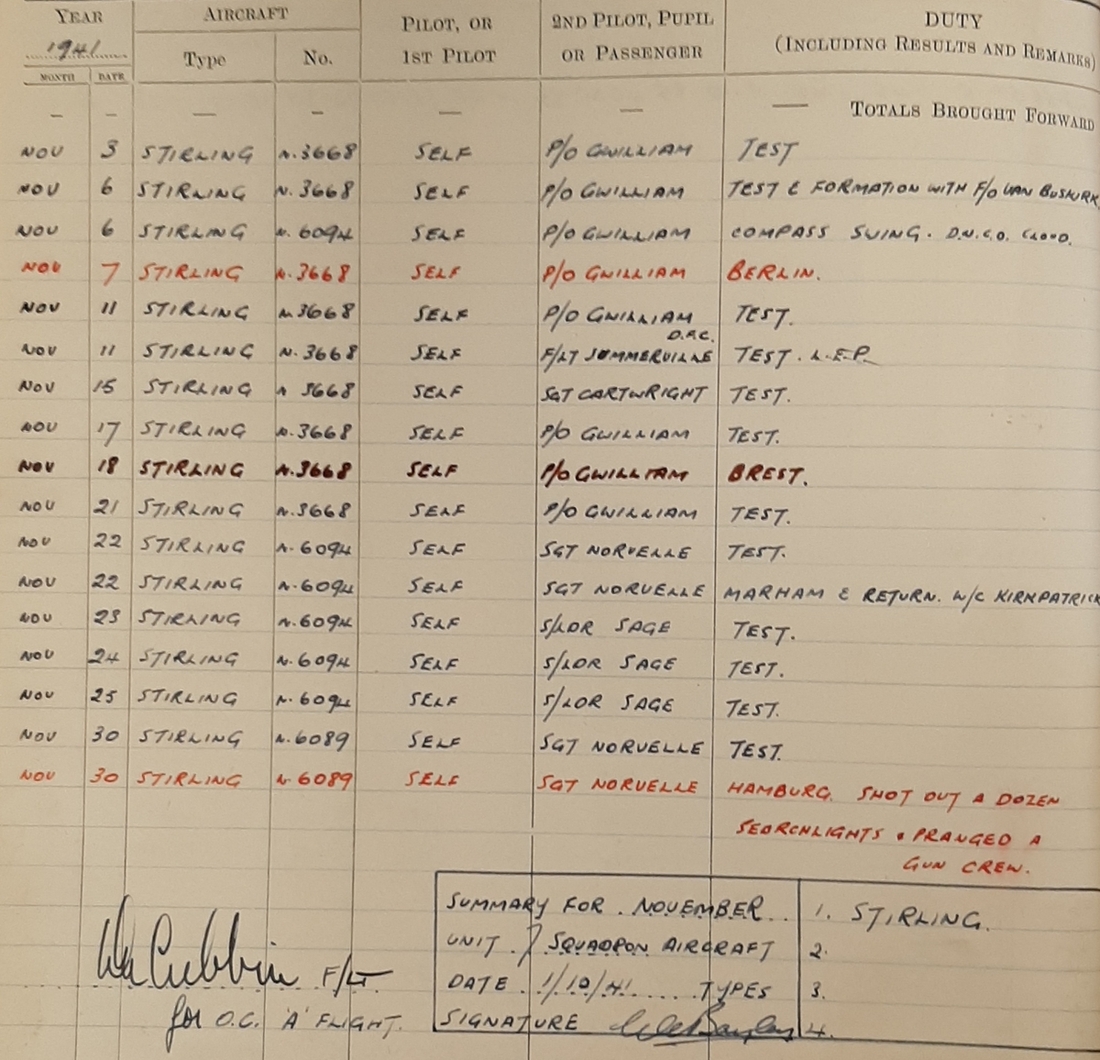 YEAR AIRCRAFT PILOT, OR 2ND PILOT, PUPIL DUTY
1941 Type No. 1ST PILOT OR PASSENGER (INCLUDING RESULTS AND REMARKS)
MONTH DATE
— — — — — — — TOTALS BROUGHT FORWARD
NOV 3 STIRLING N.3668 SELF P/O GWILLIAM TEST
NOV 6 STIRLING N.3668 SELF P/O GWILLIAM TEST & FORMATION WITH F/O VAN BUSKIRK
NOV 6 STIRLING N.6094 SELF P/O GWILLIAM COMPASS SWING. D.N.C.O. CLOUD.
NOV 7 STIRLING N.3668 SELF P/O GWILLIAM BERLIN.
NOV 11 STIRLING N.3668 SELF P/O GWILLIAM TEST.
D.F.C.
NOV 11 STIRLING N.3668 SELF F/LT SOMMERVILLE TEST. L.E.P.
NOV 15 STIRLING N 3668 SELF SGT CARTWRIGHT TEST.
NOV 17 STIRLING N.3668 SELF P/O GWILLIAM TEST.
NOV 18 STIRLING N.3668 SELF P/O GWILLIAM BREST.
NOV 21 STIRLING N.3668 SELF P/O GWILLIAM TEST.
NOV 22 STIRLING N.6094 SELF SGT NORVELLE TEST.
NOV 22 STIRLING N.6094 SELF SGT NORVELLE MARHAM & RETURN. W/C KIRKPATRICK
NOV 23 STIRLING N.6094 SELF S/LDR SAGE TEST.
NOV 24 STIRLING N.6094 SELF S/LDR SAGE TEST.
NOV 25 STIRLING N.6094 SELF S/LDR SAGE TEST.
NOV 30 STIRLING N.6089 SELF SGT NORVELLE TEST.
NOV 30 STIRLING N 6089 SELF SGT NORVELLE HAMBURG. SHOT OUT A DOZEN
SEARCHLIGHTS & PRANGED A
GUN CREW.
SUMMARY FOR . NOVEMBER 1. STIRLING.
UNIT . 7 SQUADRON AIRCRAFT 2.
F/LT
DATE . 1/12/41 TYPES 3.
for O.C. 'A' FLIGHT.
SIGNATURE 4.